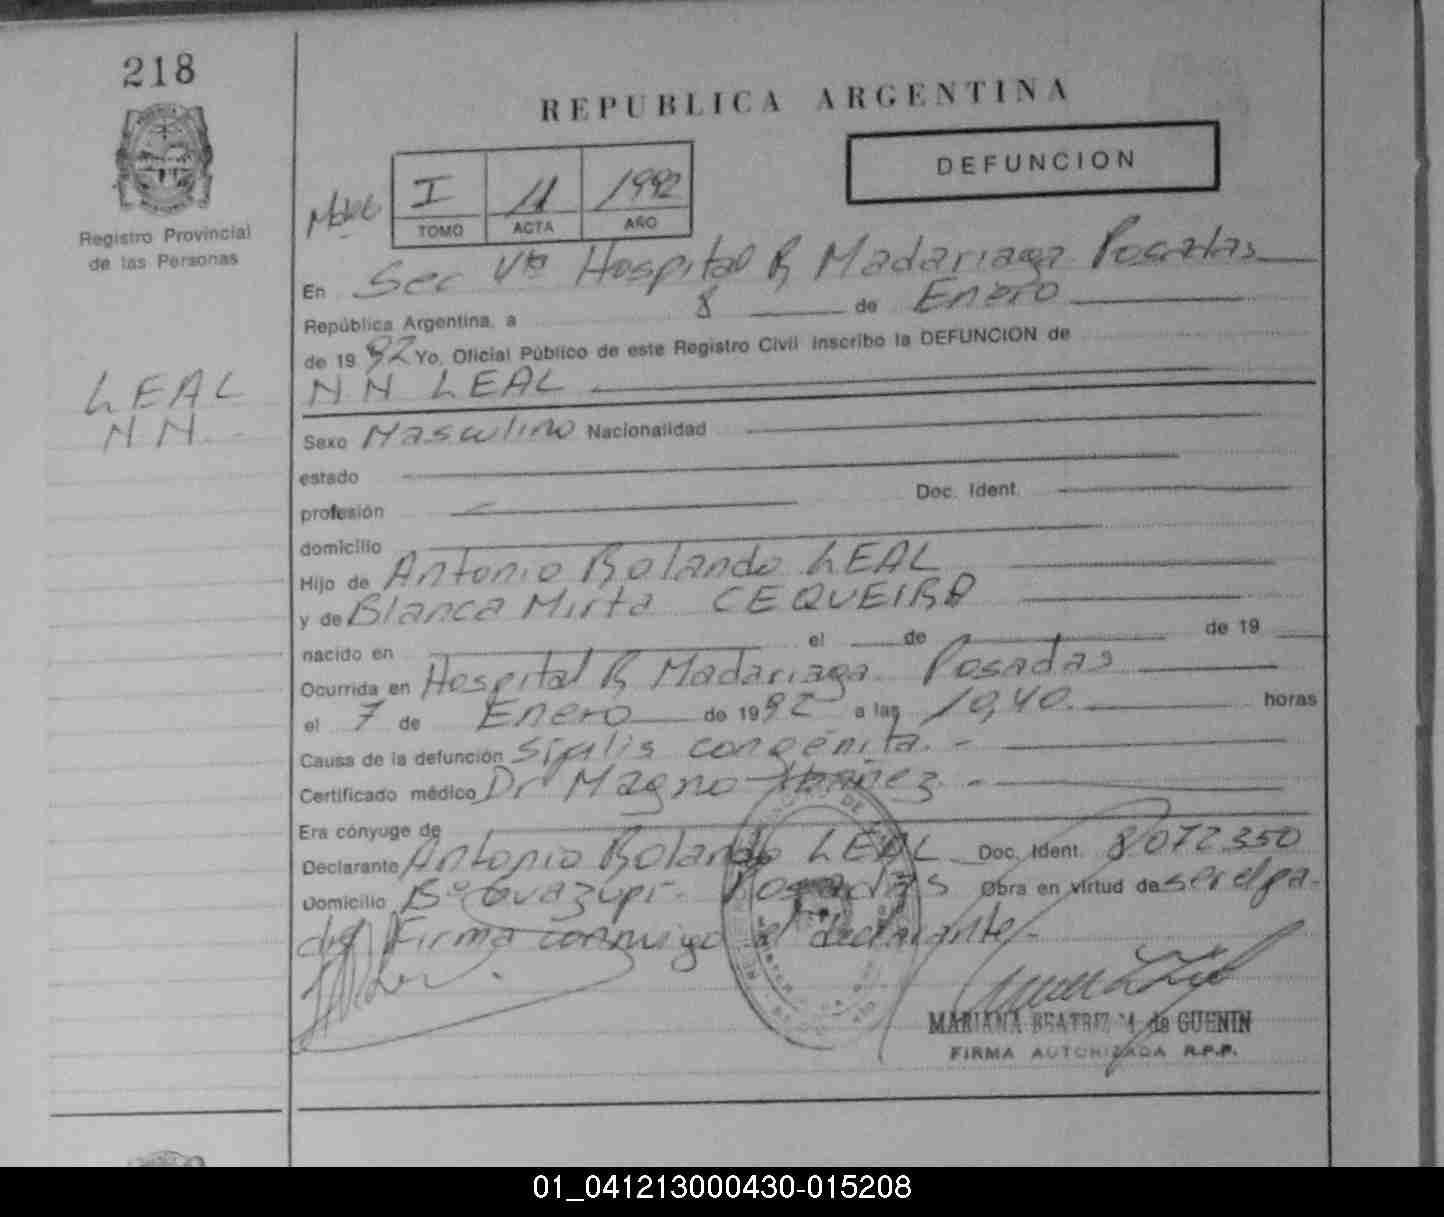 218
REPUBLICA ARGENTINA
DEFUNCION
I 11 1992
TOMO ACTA AÑO
Registro Provincial
de las Personas
En Sec Vta Hospital R, Madariaga Posadas
República Argentina, a 8 de Enero
de 1992 Yo, Oficial Público de este Registro Civil inscribo la DEFUNCION de
LEAL
N N
N N LEAL
Sexo Masculino Nacionalidad
estado
profesión Doc. Ident.
domicilio
Hijo de Antonio Rolando LEAL
y de Blanca Mirta CEQUEIRA
nacido en el de de 19
Ocurrida en Hospital R, Madariaga Posadas
el 7 de Enero de 1992 a las 10,40 horas
Causa de la defunción Sífilis congénita.-
Certificado médico Dr Magno Ibañez.-
Era cónyuge de
Declarante Antonio Rolando LEAL Doc. Ident. 8072350
Domicilio Bº Guazupi - Posadas Obra en virtud de ser el pa-
dre Firma conmigo el declarante.-
MARIANA BEATRIZ M. de GUENIN
FIRMA AUTORIZADA R.P.P.
01_041213000430-015208